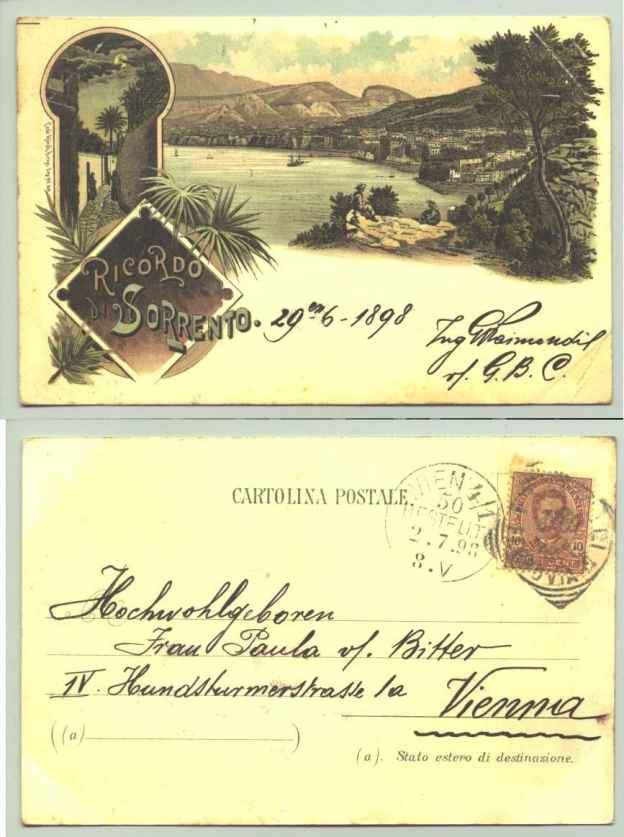 RICORDO
DI SORRENTO.
29 6 - 1898
Ing
v. G. B. C.
CARTOLINA POSTALE
WIEN 4/1
50
BESTELLT
2.7.98
8.V
10 10
Hochwohlgeboren
Frau Paula v. Bitter
IV. Hundsturmerstrasse 1a Vienna
(a)
(a). Stato estero di destinazione.